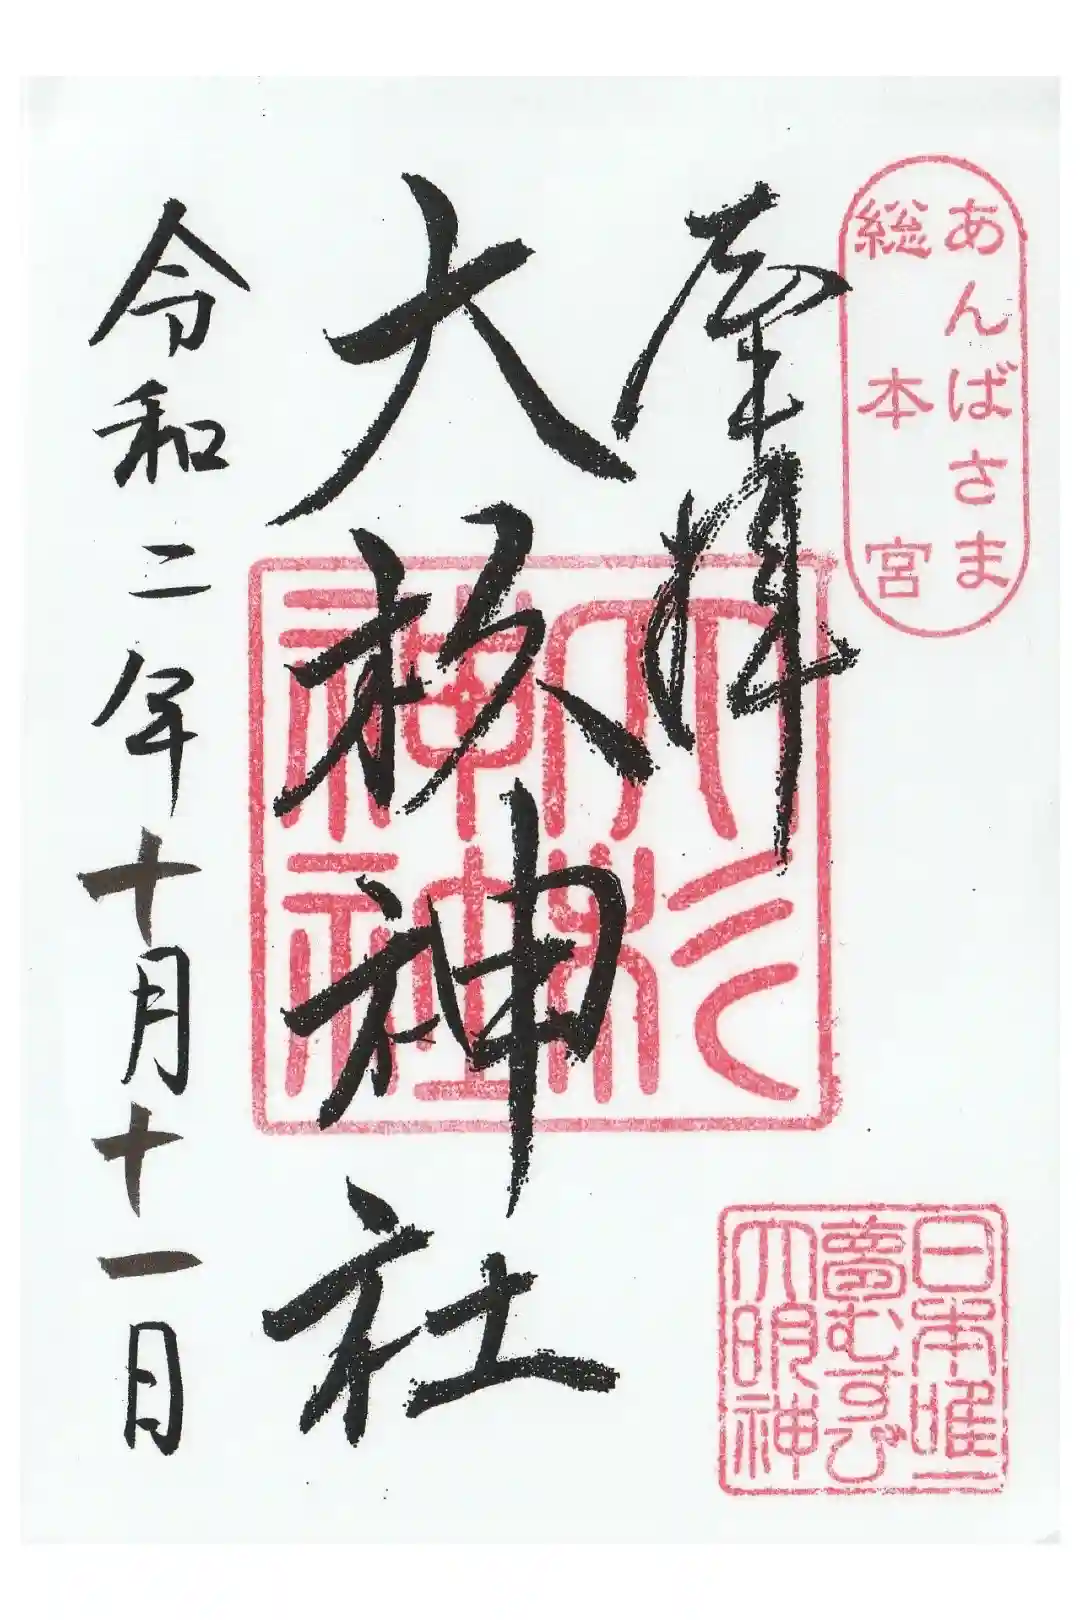 あんばさま
総本宮
奉拝
大杦神社
大杉
神社
令和二年十月十一日
日本唯一
夢むすび
大明神